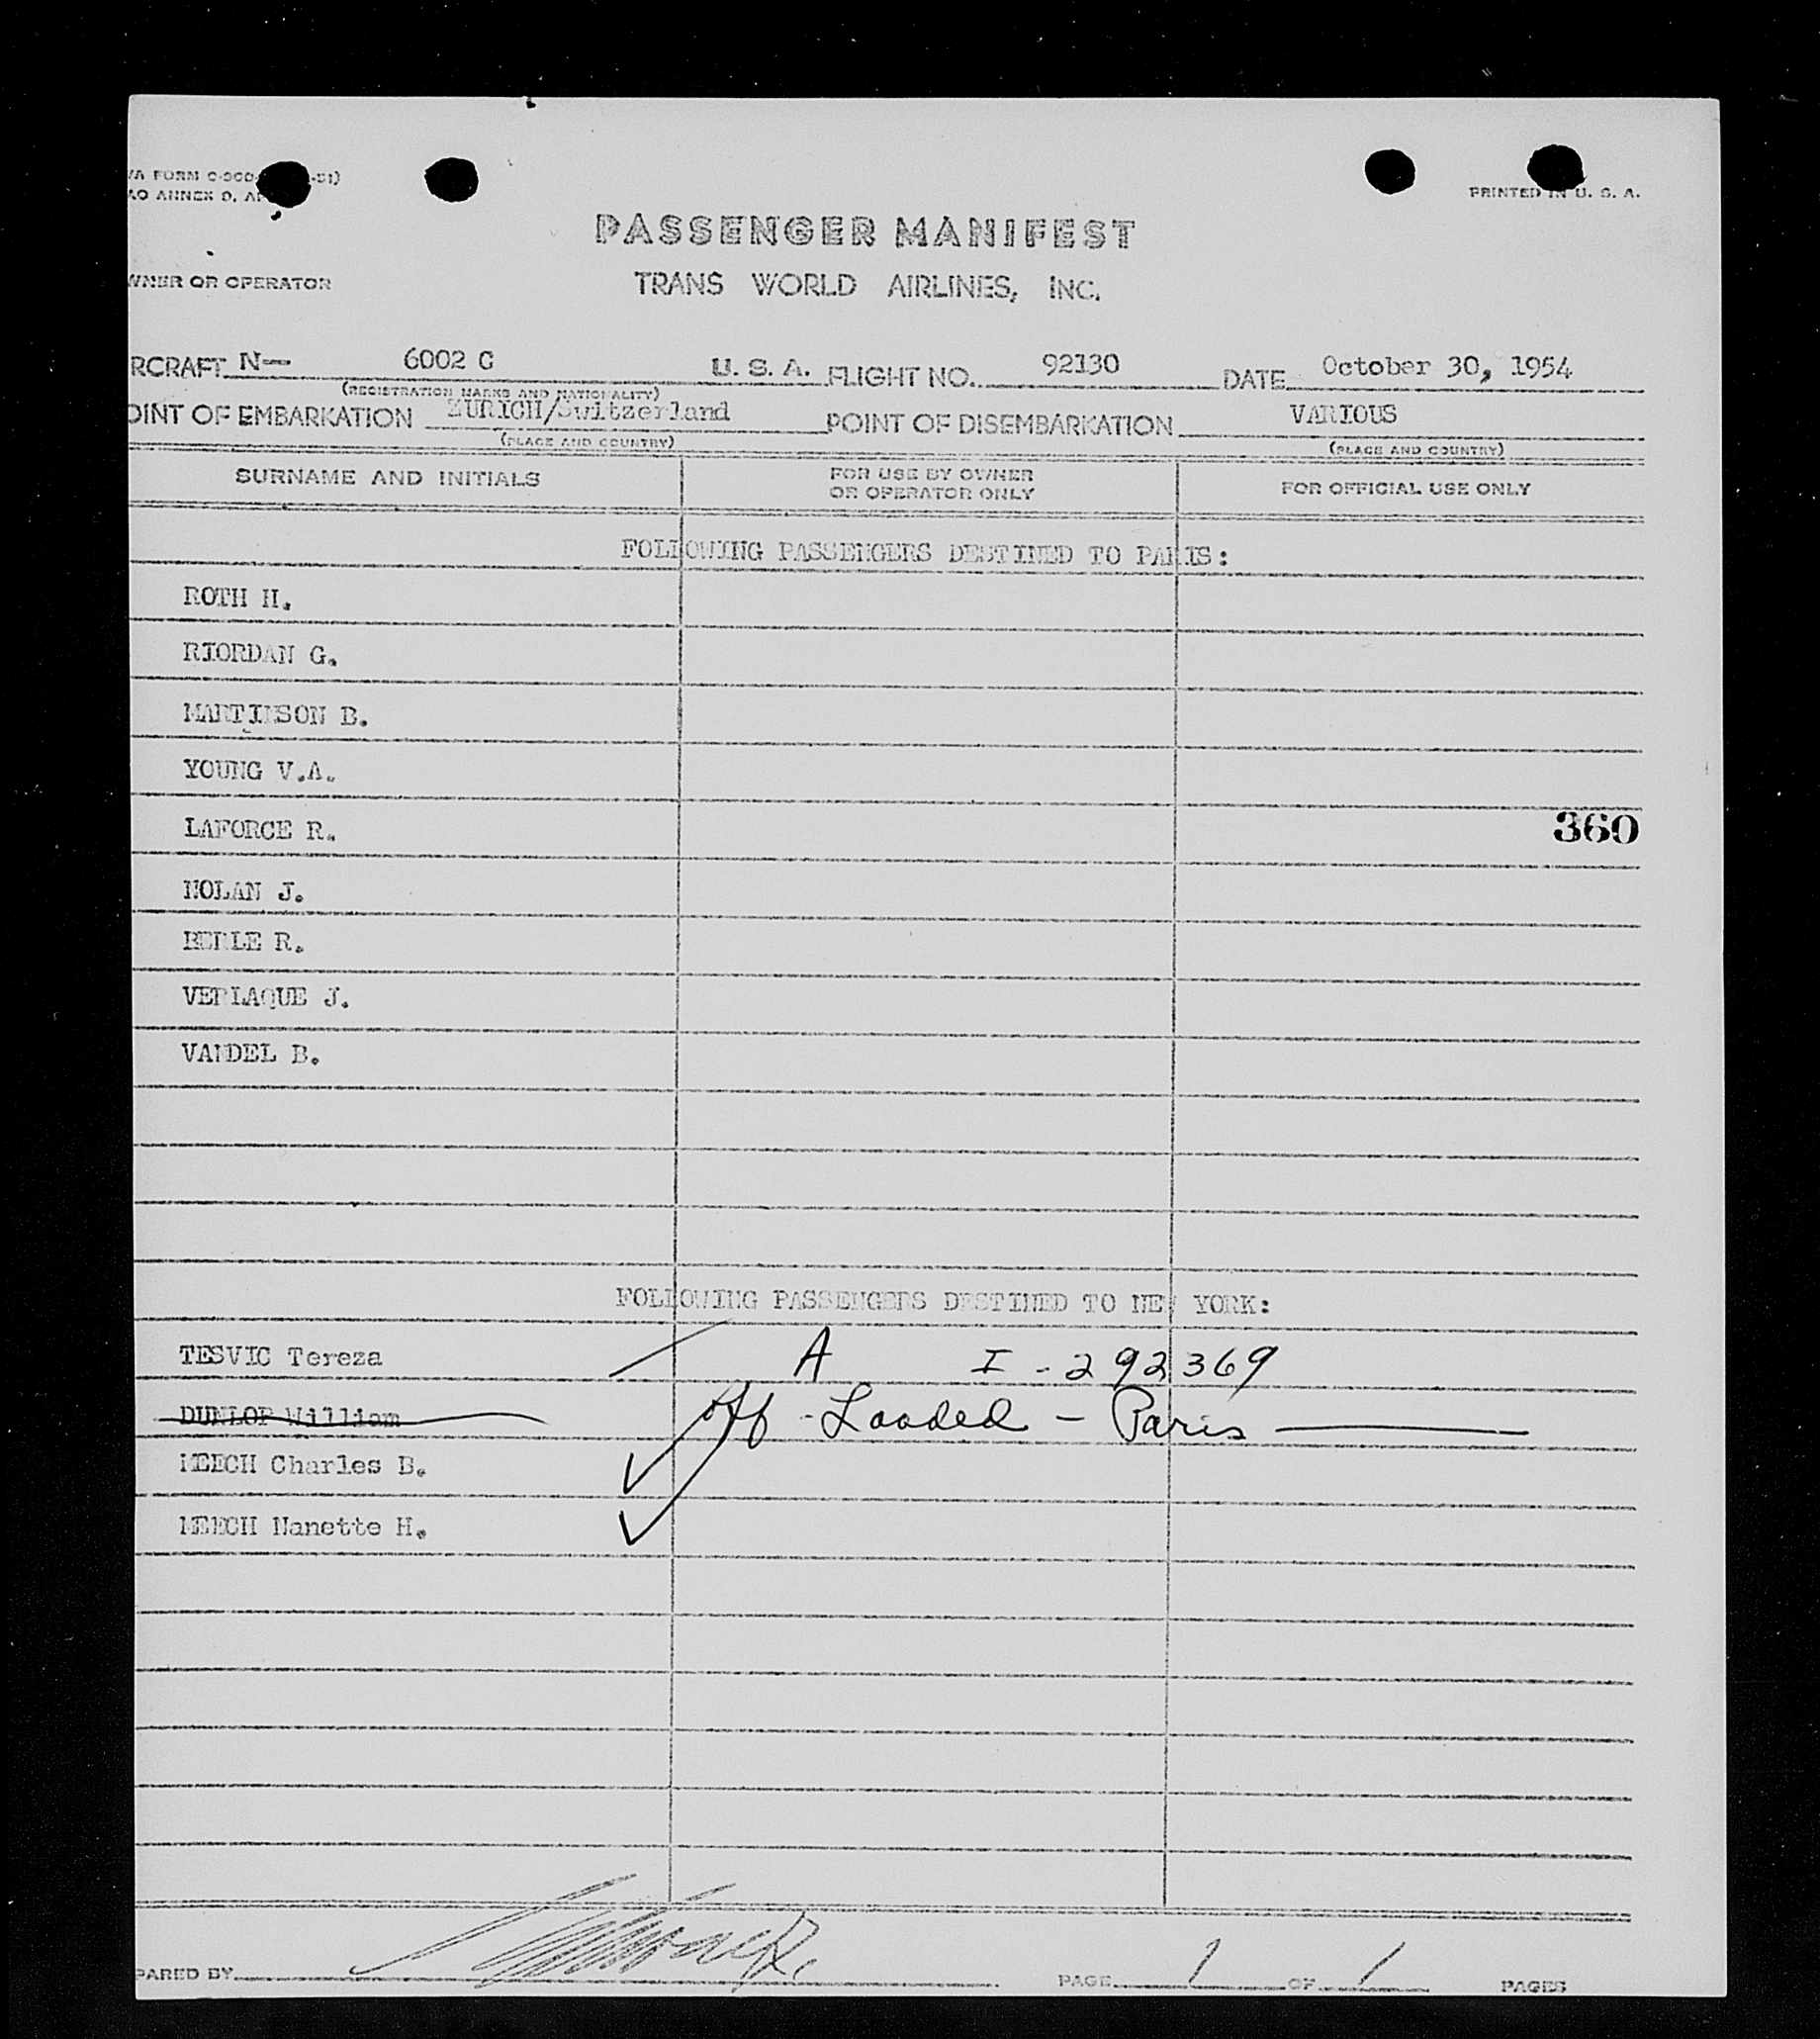 VA FORM C-
-51)
AO ANNEX 9,
PRINTED IN U. S. A.
PASSENGER MANIFEST
WNER OR OPERATOR
TRANS WORLD AIRLINES, INC.
RCRAFT N— 6002 C U. S. A. FLIGHT NO. 92130 DATE October 30, 1954
(REGISTRATION MARKS AND NATIONALITY)
OINT OF EMBARKATION ZURICH/Switzerland POINT OF DISEMBARKATION VARIOUS
(PLACE AND COUNTRY) (PLACE AND COUNTRY)
SURNAME AND INITIALS FOR USE BY OWNER OR OPERATOR ONLY FOR OFFICIAL USE ONLY
FOLLOWING PASSENGERS DESTINED TO PARIS:
ROTH H.
RIORDAN G.
MARTINSON B.
YOUNG V.A.
LAFORCE R. 360
NOLAN J.
R.
VERLAQUE J.
VANDEL B.
FOLLOWING PASSENGERS DESTINED TO NEW YORK:
TESVIC Tereza A I - 292369
DUNLOP William Off - Loaded - Paris
MEECH Charles B.
MEECH Nanette H.
PARED BY PAGE 1 OF 1 PAGES